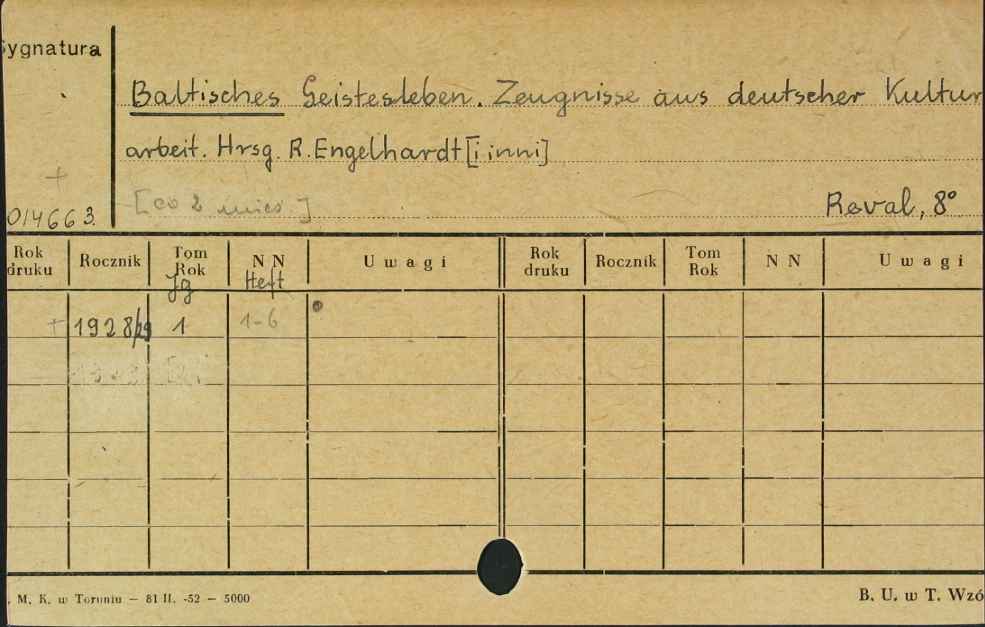 Sygnatura
Baltisches Geistesleben. Zeugnisse aus deutscher Kultur
arbeit. Hrsg. R. Engelhardt [i inni]
[co 2 mies]
Reval, 8°
014663.
Rok druku Rocznik Tom Rok NN Uwagi Rok druku Rocznik Tom Rok NN Uwagi
Jg Heft
+ 1928/29 1 1-6
. M. K. w Toruniu — 81 II. -52 — 5000
B. U. w T. Wzó